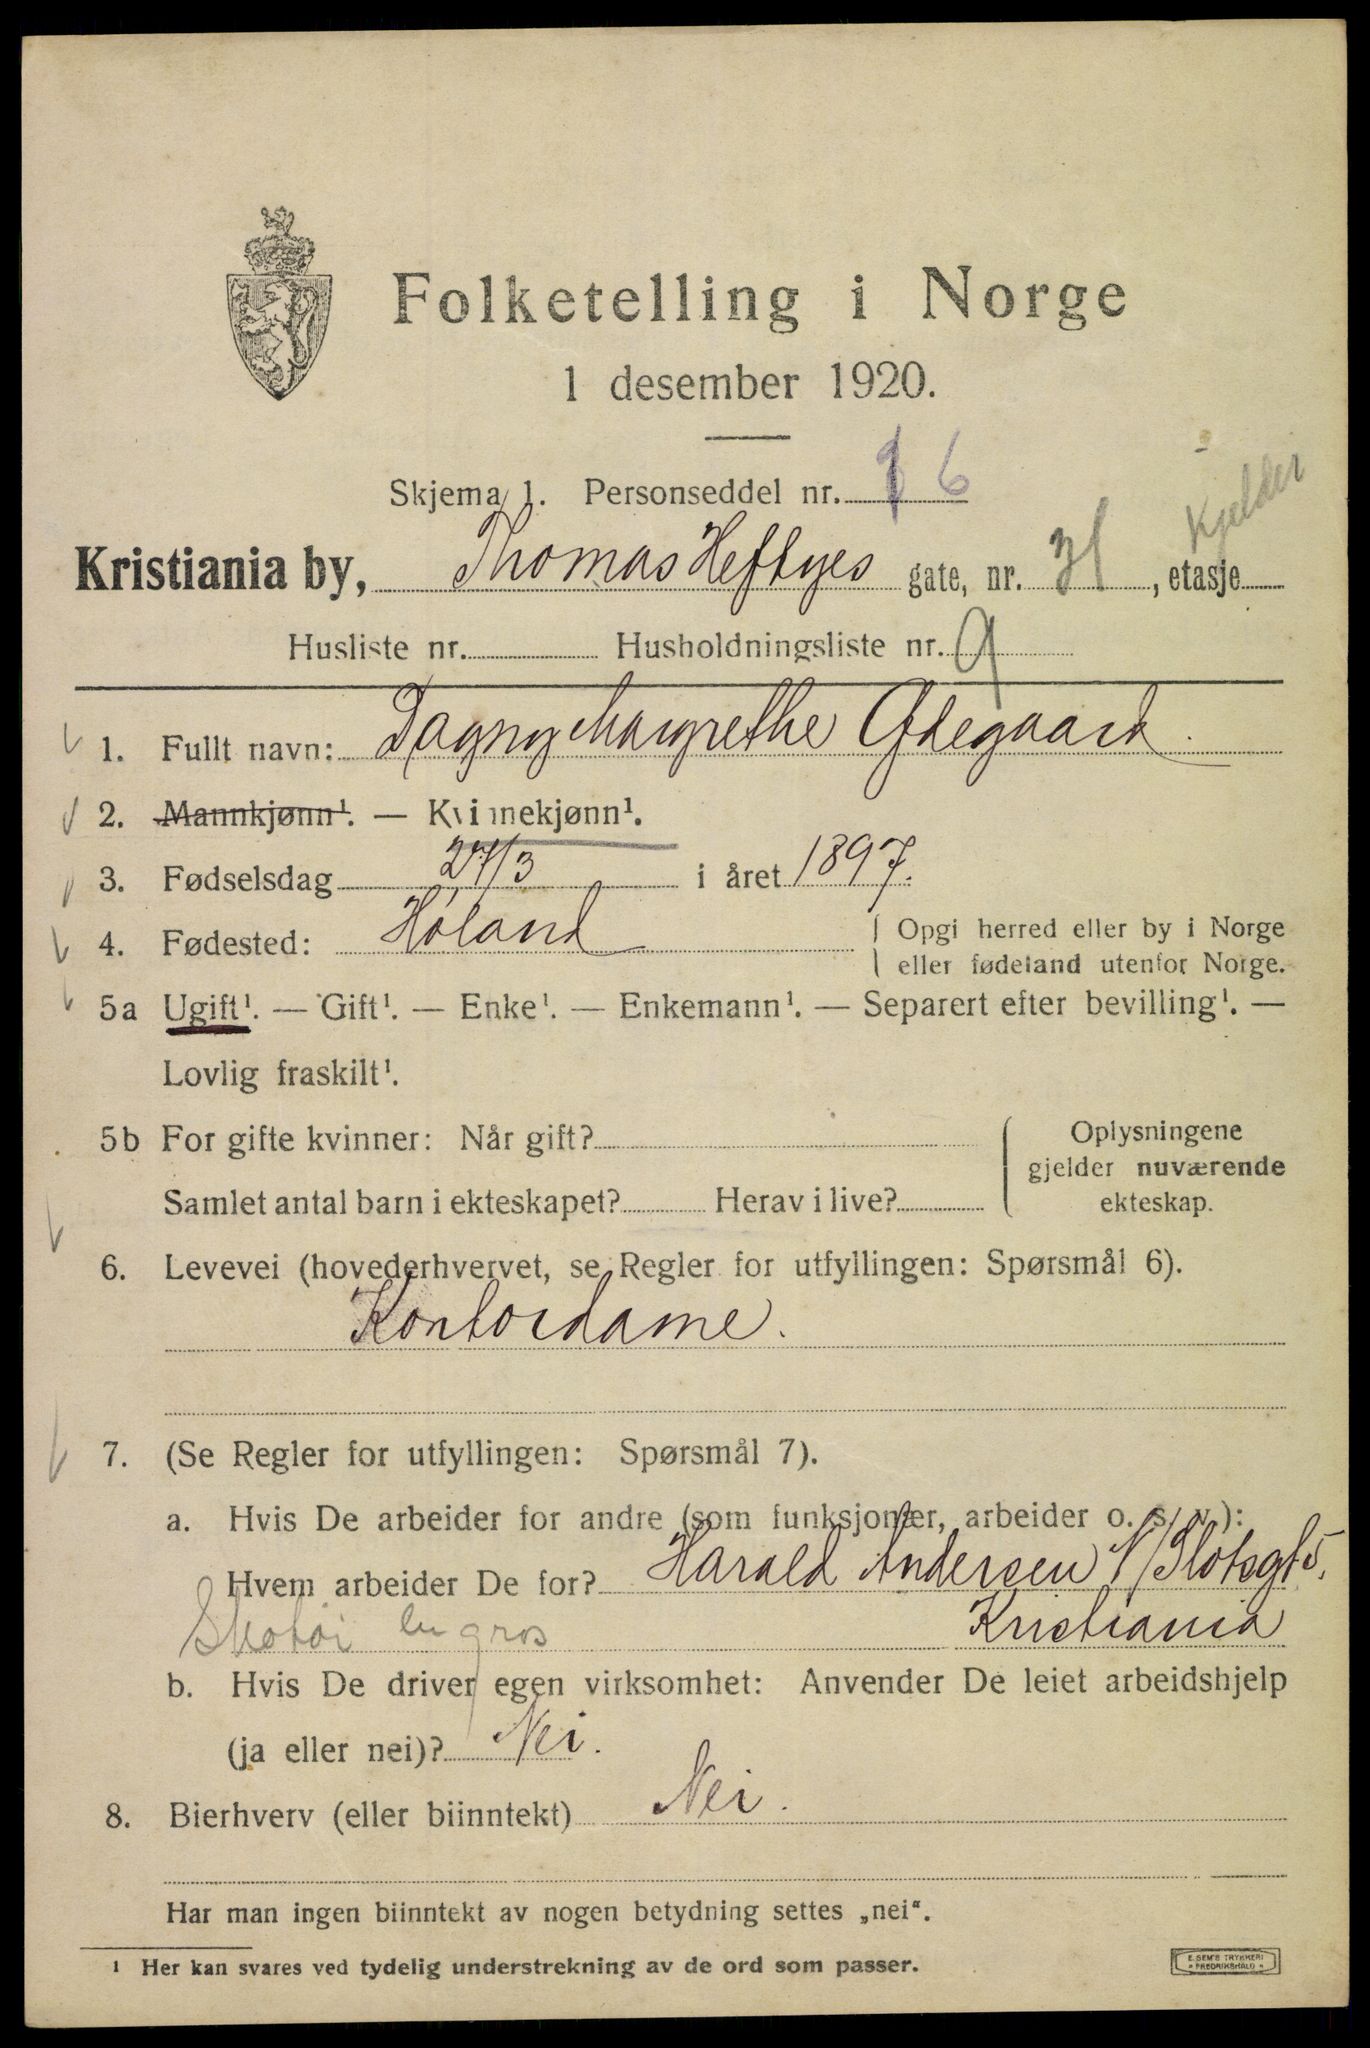 Folketelling i Norge
1 desember 1920.
Skjema 1. Personseddel nr. 6
Kjelder
Kristiania by, Thomas Heftyes gate, nr. 31, etasje
Husliste nr. Husholdningsliste nr. 9
1. Fullt navn: Dagny Margrethe Ødegaard.
2. Mannkjønn¹. — Kvinnekjønn¹.
3. Fødselsdag 27/3 i året 1897.
4. Fødested: Høland Opgi herred eller by i Norge
eller fødeland utenfor Norge.
5a Ugift¹. — Gift¹. — Enke¹. — Enkemann¹. — Separert efter bevilling¹. —
Lovlig fraskilt¹.
5b For gifte kvinner: Når gift?
Samlet antal barn i ekteskapet? Herav i live?
Oplysningene
gjelder nuværende
ekteskap.
6. Levevei (hovederhvervet, se Regler for utfyllingen: Spørsmål 6).
Kontordame.
7. (Se Regler for utfyllingen: Spørsmål 7).
a. Hvis De arbeider for andre (som funksjonær, arbeider o. s. v.):
Hvem arbeider De for? Harald Andersen N/Slotsgt 5,
Skotøi en gros Kristiania
b. Hvis De driver egen virksomhet: Anvender De leiet arbeidshjelp
(ja eller nei)? Nei.
8. Bierhverv (eller biinntekt) Nei.
Har man ingen biinntekt av nogen betydning settes „nei“.
¹ Her kan svares ved tydelig understrekning av de ord som passer.
E. SEM'S TRYKKERI
FREDRIKSHALD